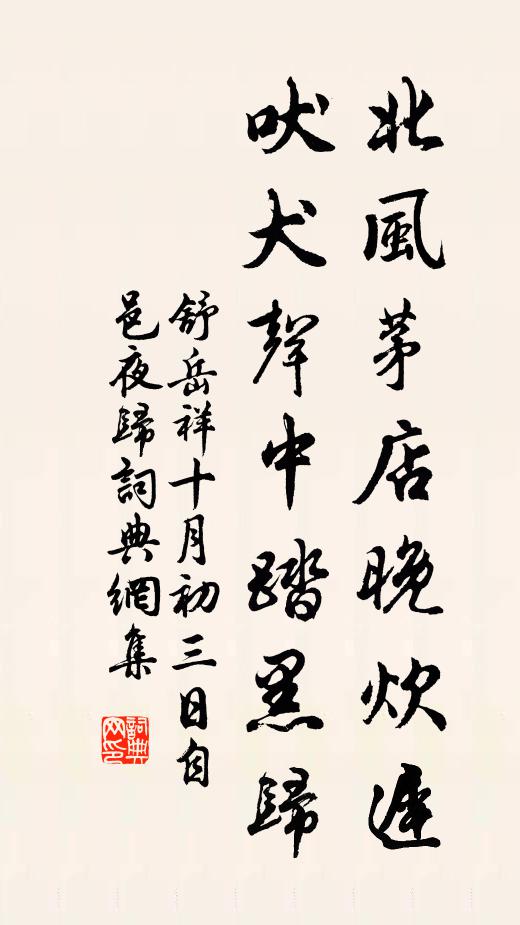 北風茅店晚炊遲
吠犬聲中踏黑歸
舒岳祥十月初三日自
邑夜歸詞典網集
詞典
网印